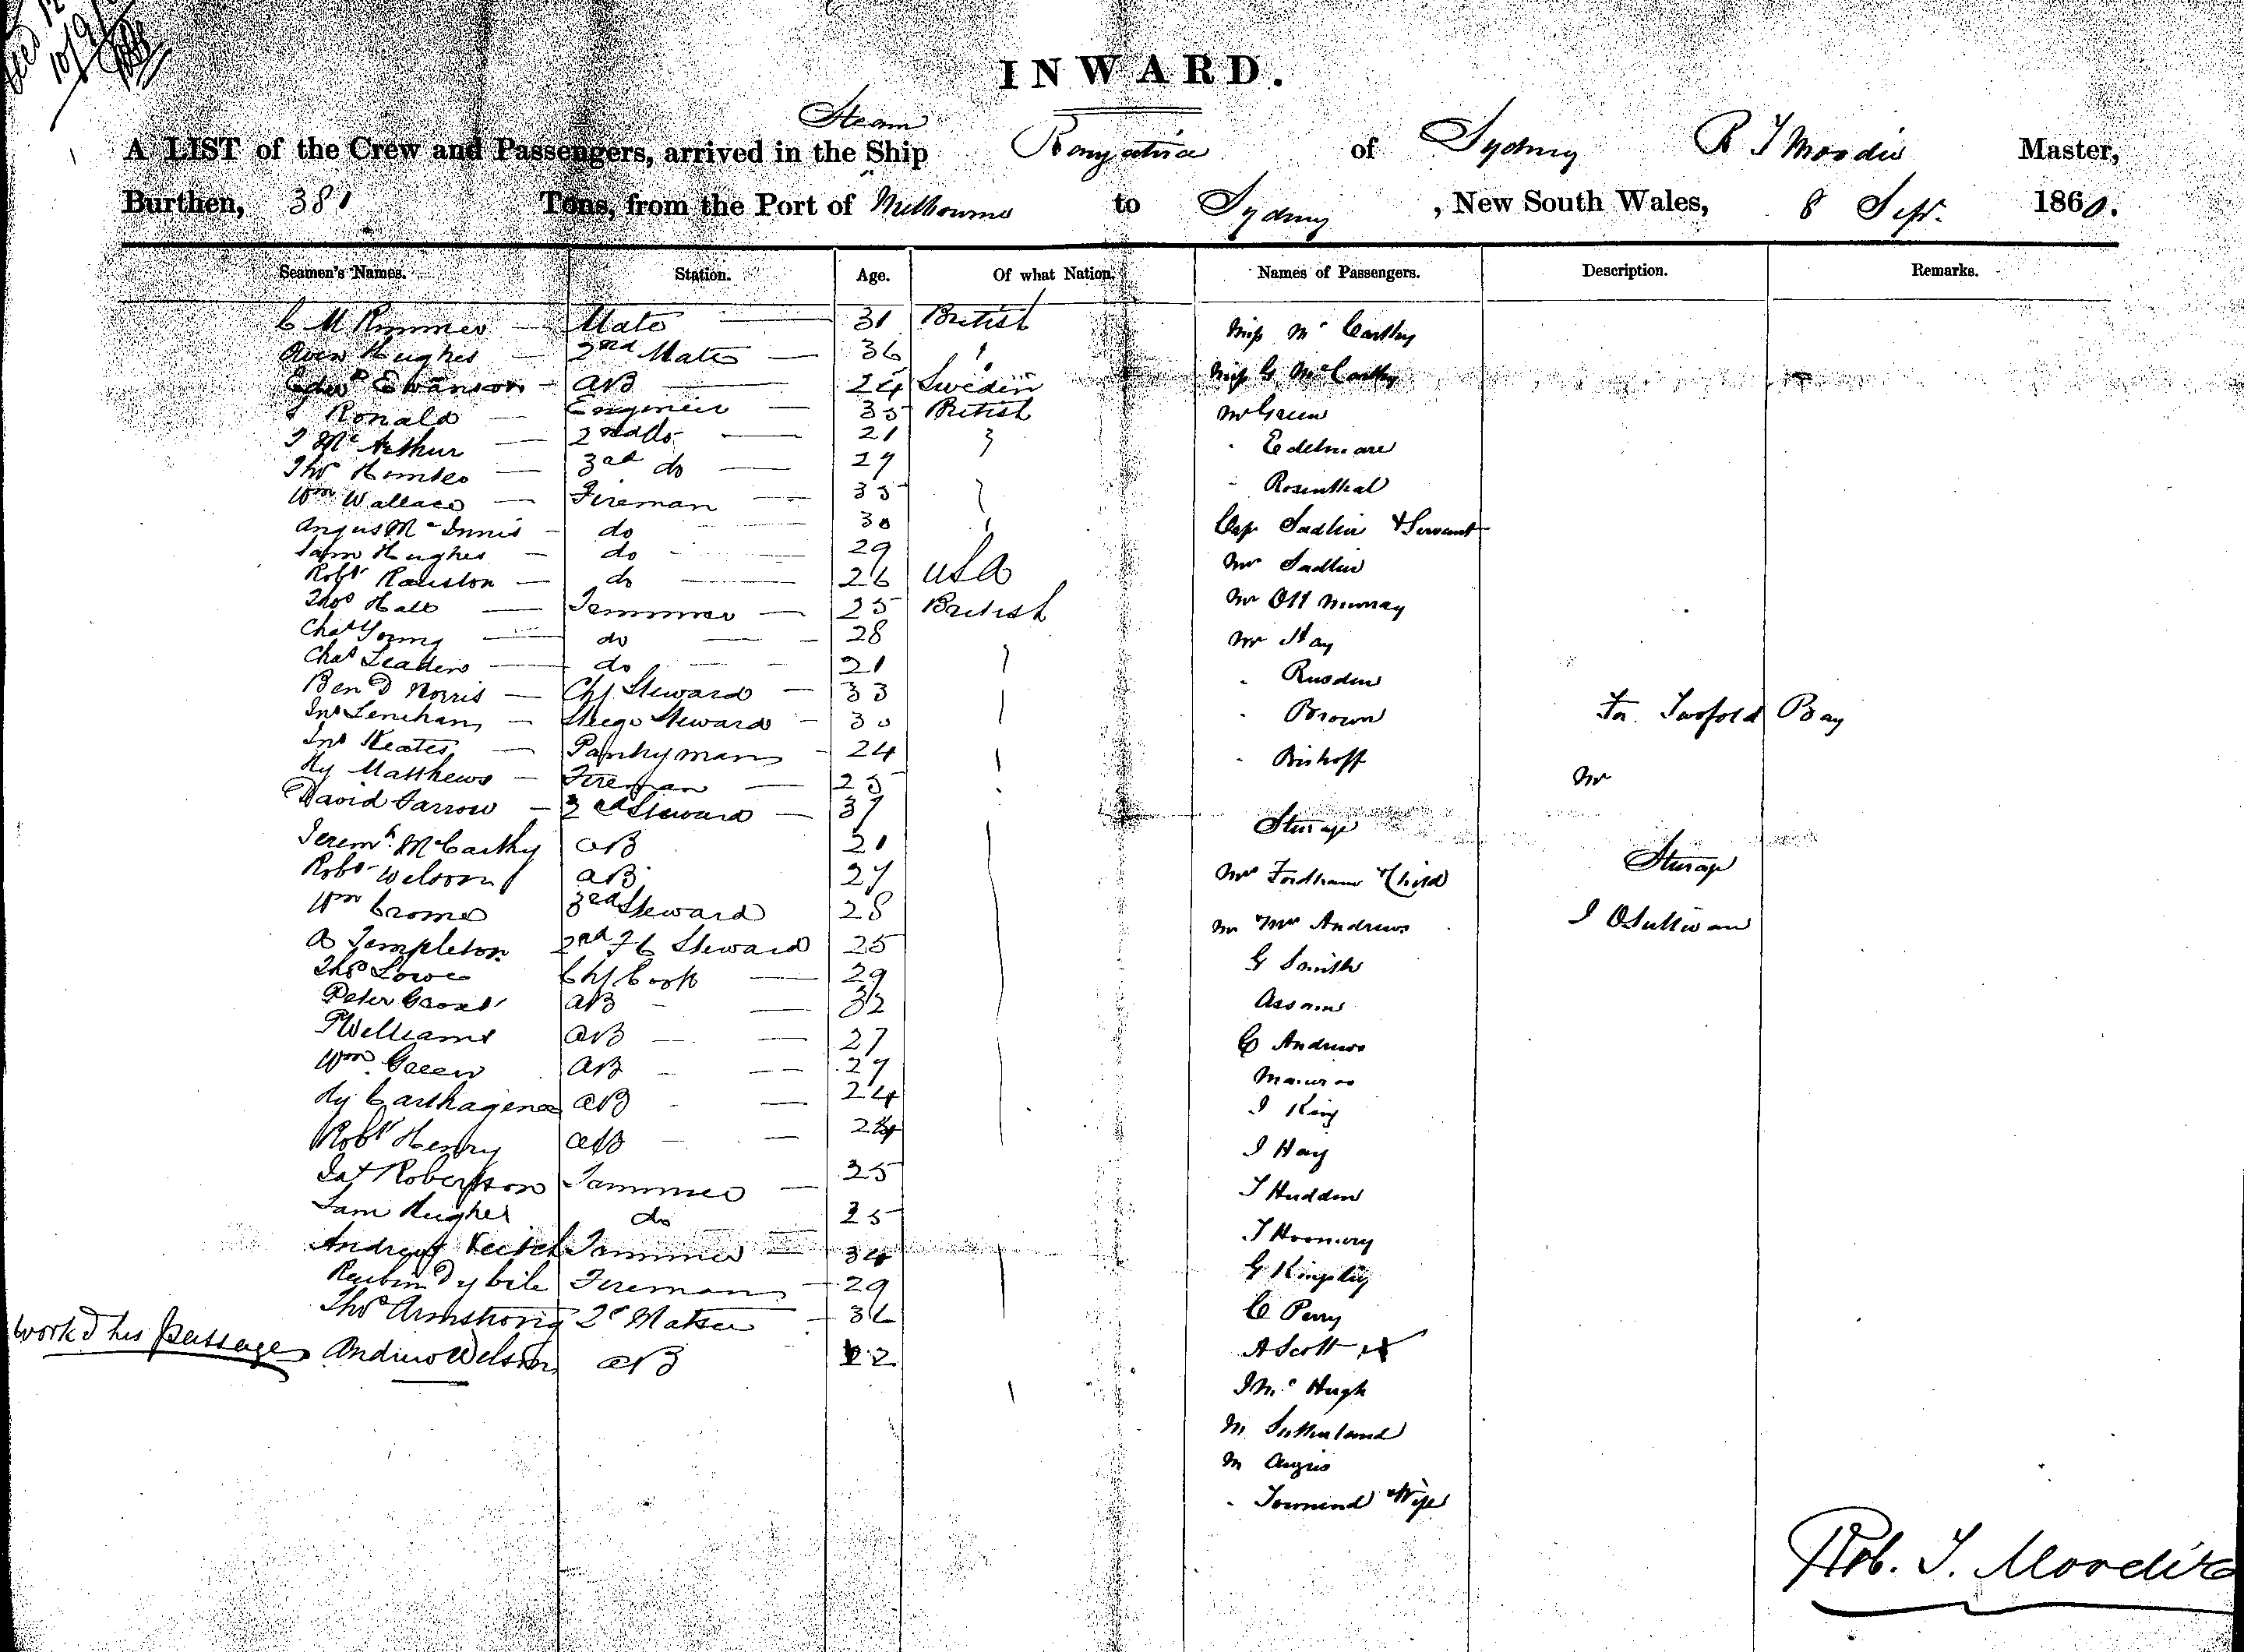 10/9/
INWARD.
Steam
A LIST of the Crew and Passengers, arrived in the Ship Rangatira of Sydney R T Moodie Master,
Burthen, 381 Tons, from the Port of Melbourne to Sydney, New South Wales, 8 Sepr. 1860.
Seamen's Names. Station. Age. Of what Nation. Names of Passengers. Description. Remarks.
C M Rimmer — Mate — 31 British
Owen Hughes — 2nd Mate — 36 "
Edwd Ewanson — AB — 24 Sweden
Ronald — Engineer — 35 British
J McArthur — 2nd do — 21 "
Thos — 3rd do — 27
Wm Wallace — Fireman — 35
Angus McInnis — do — 30 "
Sam Hughes — do — 29
Robt Rauston — do — 26 USA
Thos Hall — Trimmer — 25 British
Chas Young — do — 28
Chas Leaden — do — 21
Ben D Norris — Chf Steward — 33
Jno Lenehan — Steege Steward — 30
Jno Keates — Pantryman — 24
Hy Matthews — Fireman — 25
David Farrow — 2nd Steward — 37
Jeremh McCarthy AB 21
Robt Wilson AB 27
Wm Crome 3rd Steward 28
A Templeton 2nd F C Steward 25
Thos Lowe Chf Cook — 29
Peter Grant AB — 32
P Williams AB — 27
Wm Green AB — 27
Hy Carthagena AB — 24
Robt Henry AB — 24
Jas Robertson Trimmer — 25
Sam Hughes do 25
Andrew Trimmer — 34
Reubin Dybile Fireman — 29
Thos Armstrong 2d — 36
Work'd his passage Andrew Wilson AB 22
Miss McCarthy
Miss G McCarthy
Mr Green
" Edelmare
" Rosenthal
Cap Sadlier & Servant
Mr Sadlier
Mr Murray
Mr Hay
" Rusden
" Brown For Twofold Bay
" Bishoff Mr
Steerage
Steerage
Mrs Fordham & Child
Mr & Mrs Andrews J OSullivan
G Smith
Assam
C Andrews
J King
J Hay
T Hudden
G Kingsley
C Perry
A Scott
J McHugh
M Sutherland
M Angus
" Townend & Wife
Rob. T. Moodie